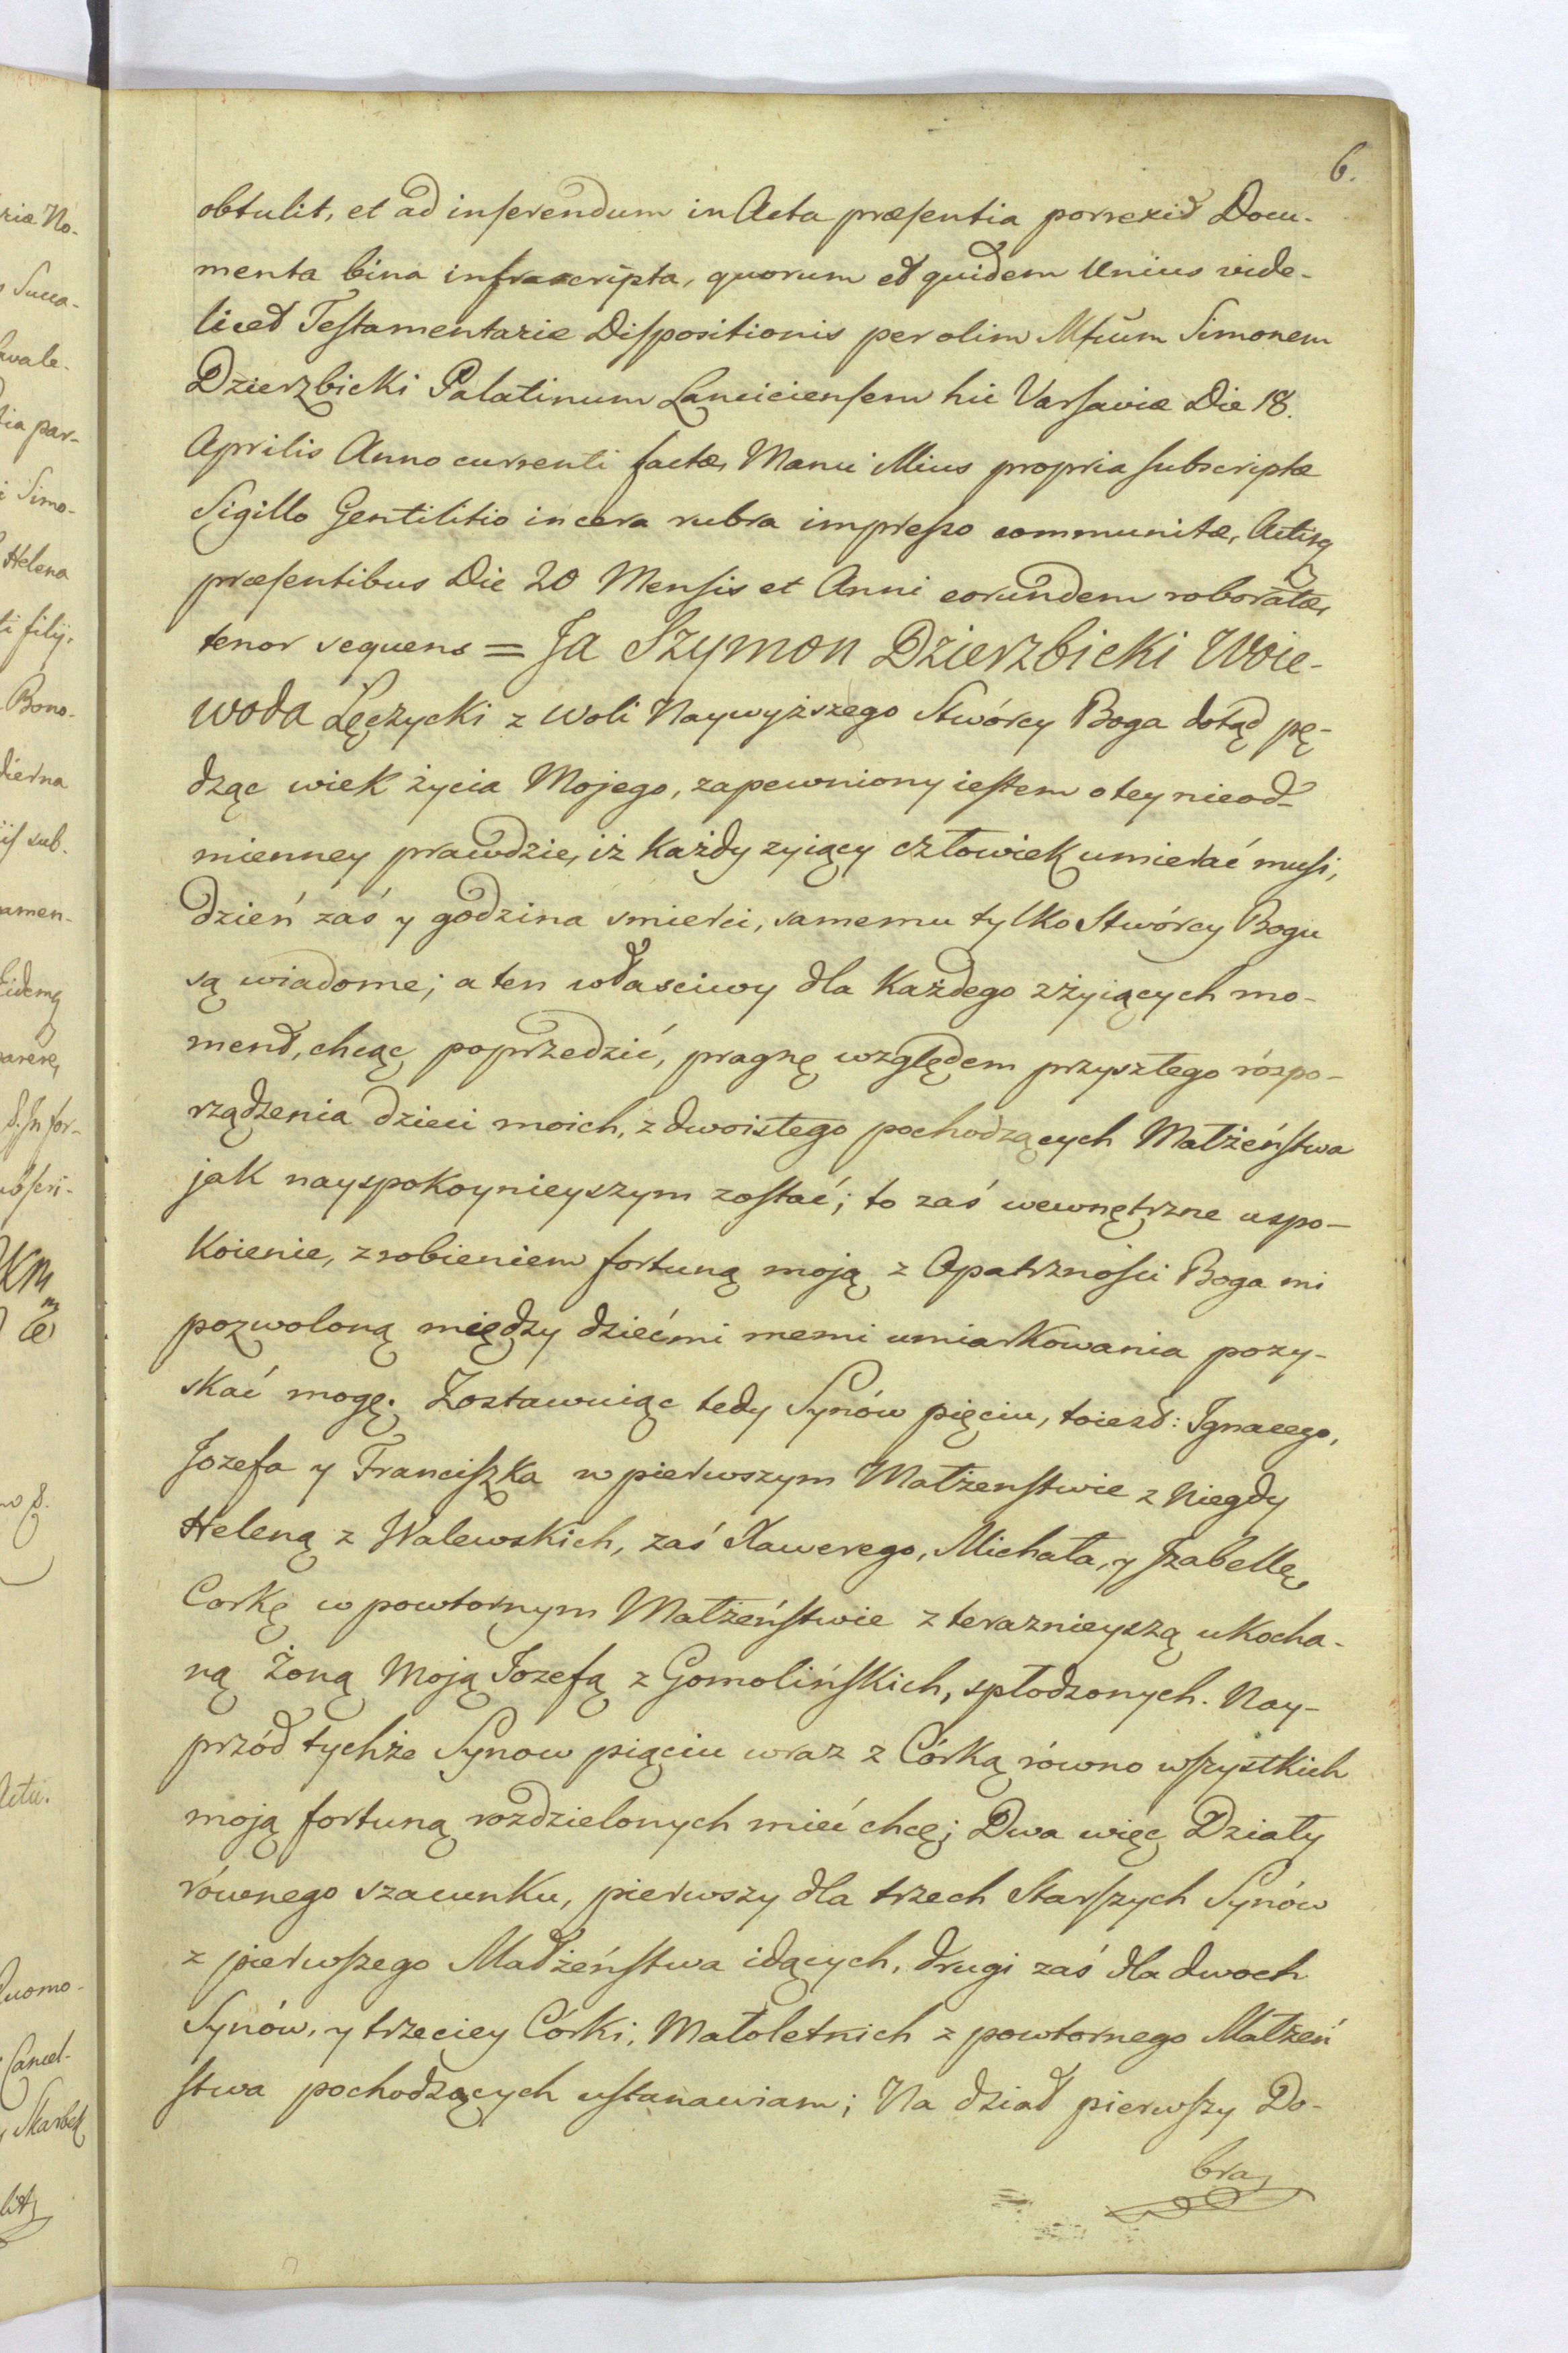 6.
obtulit, et ad inserendum in Acta præsentia porrexit Docu-
menta bina infrascripta, quorum et quidem Unius vide-
licet Testamentariæ Dispositionis per olim Mfcum Simonem
Dzierzbicki Palatinum Lanciciensem hic Varsaviæ Die 18.
Aprilis Anno currenti factæ, Manu Illius propria subscriptæ
Sigillo Gentilitio in cera rubra impresso communitæ, Actisq
præsentibus Die 20 Mensis et Anni eorundem roboratæ,
tenor sequens = Ja Szymon Dzierzbicki Woie-
woda Łęczycki z Woli Naywyższego Stwórcy Boga dotąd pę-
dząc wiek życia Mojego, zapewniony iestem o tey nieod-
mienney prawdzie, iż każdy zyiący człowiek umierać musi,
dzień zaś y godzina smierci, samemu tylko Stwórcy Bogu
są wiadome; a ten własciwy dla każdego zżyiących mo-
ment, chcąc poprzedzić, pragnę względem przyszłego rózpo-
rządzenia dzieci moich, z dwoistego pochodzących Małżeństwa
jak nayspokoynieyszym zostać; to zaś wewnętrzne uspo-
koienie, zrobieniem fortuną moją z Opatrzności Boga mi
pozwoloną między dziećmi memi umiarkowania pozy-
skać mogę. Zostawuiąc tedy Synów pięciu, toiest: Ignacego,
Jozefa y Franciszka w pierwszym Małżenstwie z niegdy
Heleną z Walewskich, zaś Xawerego, Michała, y Jzabellę
Corkę w powtornym Małżeństwie z teraznieyszą ukocha-
ną Żoną Moją Jozefą z Gomolińskich, spłodzonych. Nay-
przód tychże Synow pięciu wraz z Córką równo wszystkich
moją fortuną rozdzielonych mieć chcę; Dwa więc Działy
równego szacunku, pierwszy dla trzech Starszych Synów
z pierwszego Małżeństwa idących, drugi zaś dla dwoch
Synów, y trzeciey Córki, Małoletnich z powtornego Małżeń
stwa pochodzących ustanawiam; Na dział pierwszy Do-
bra